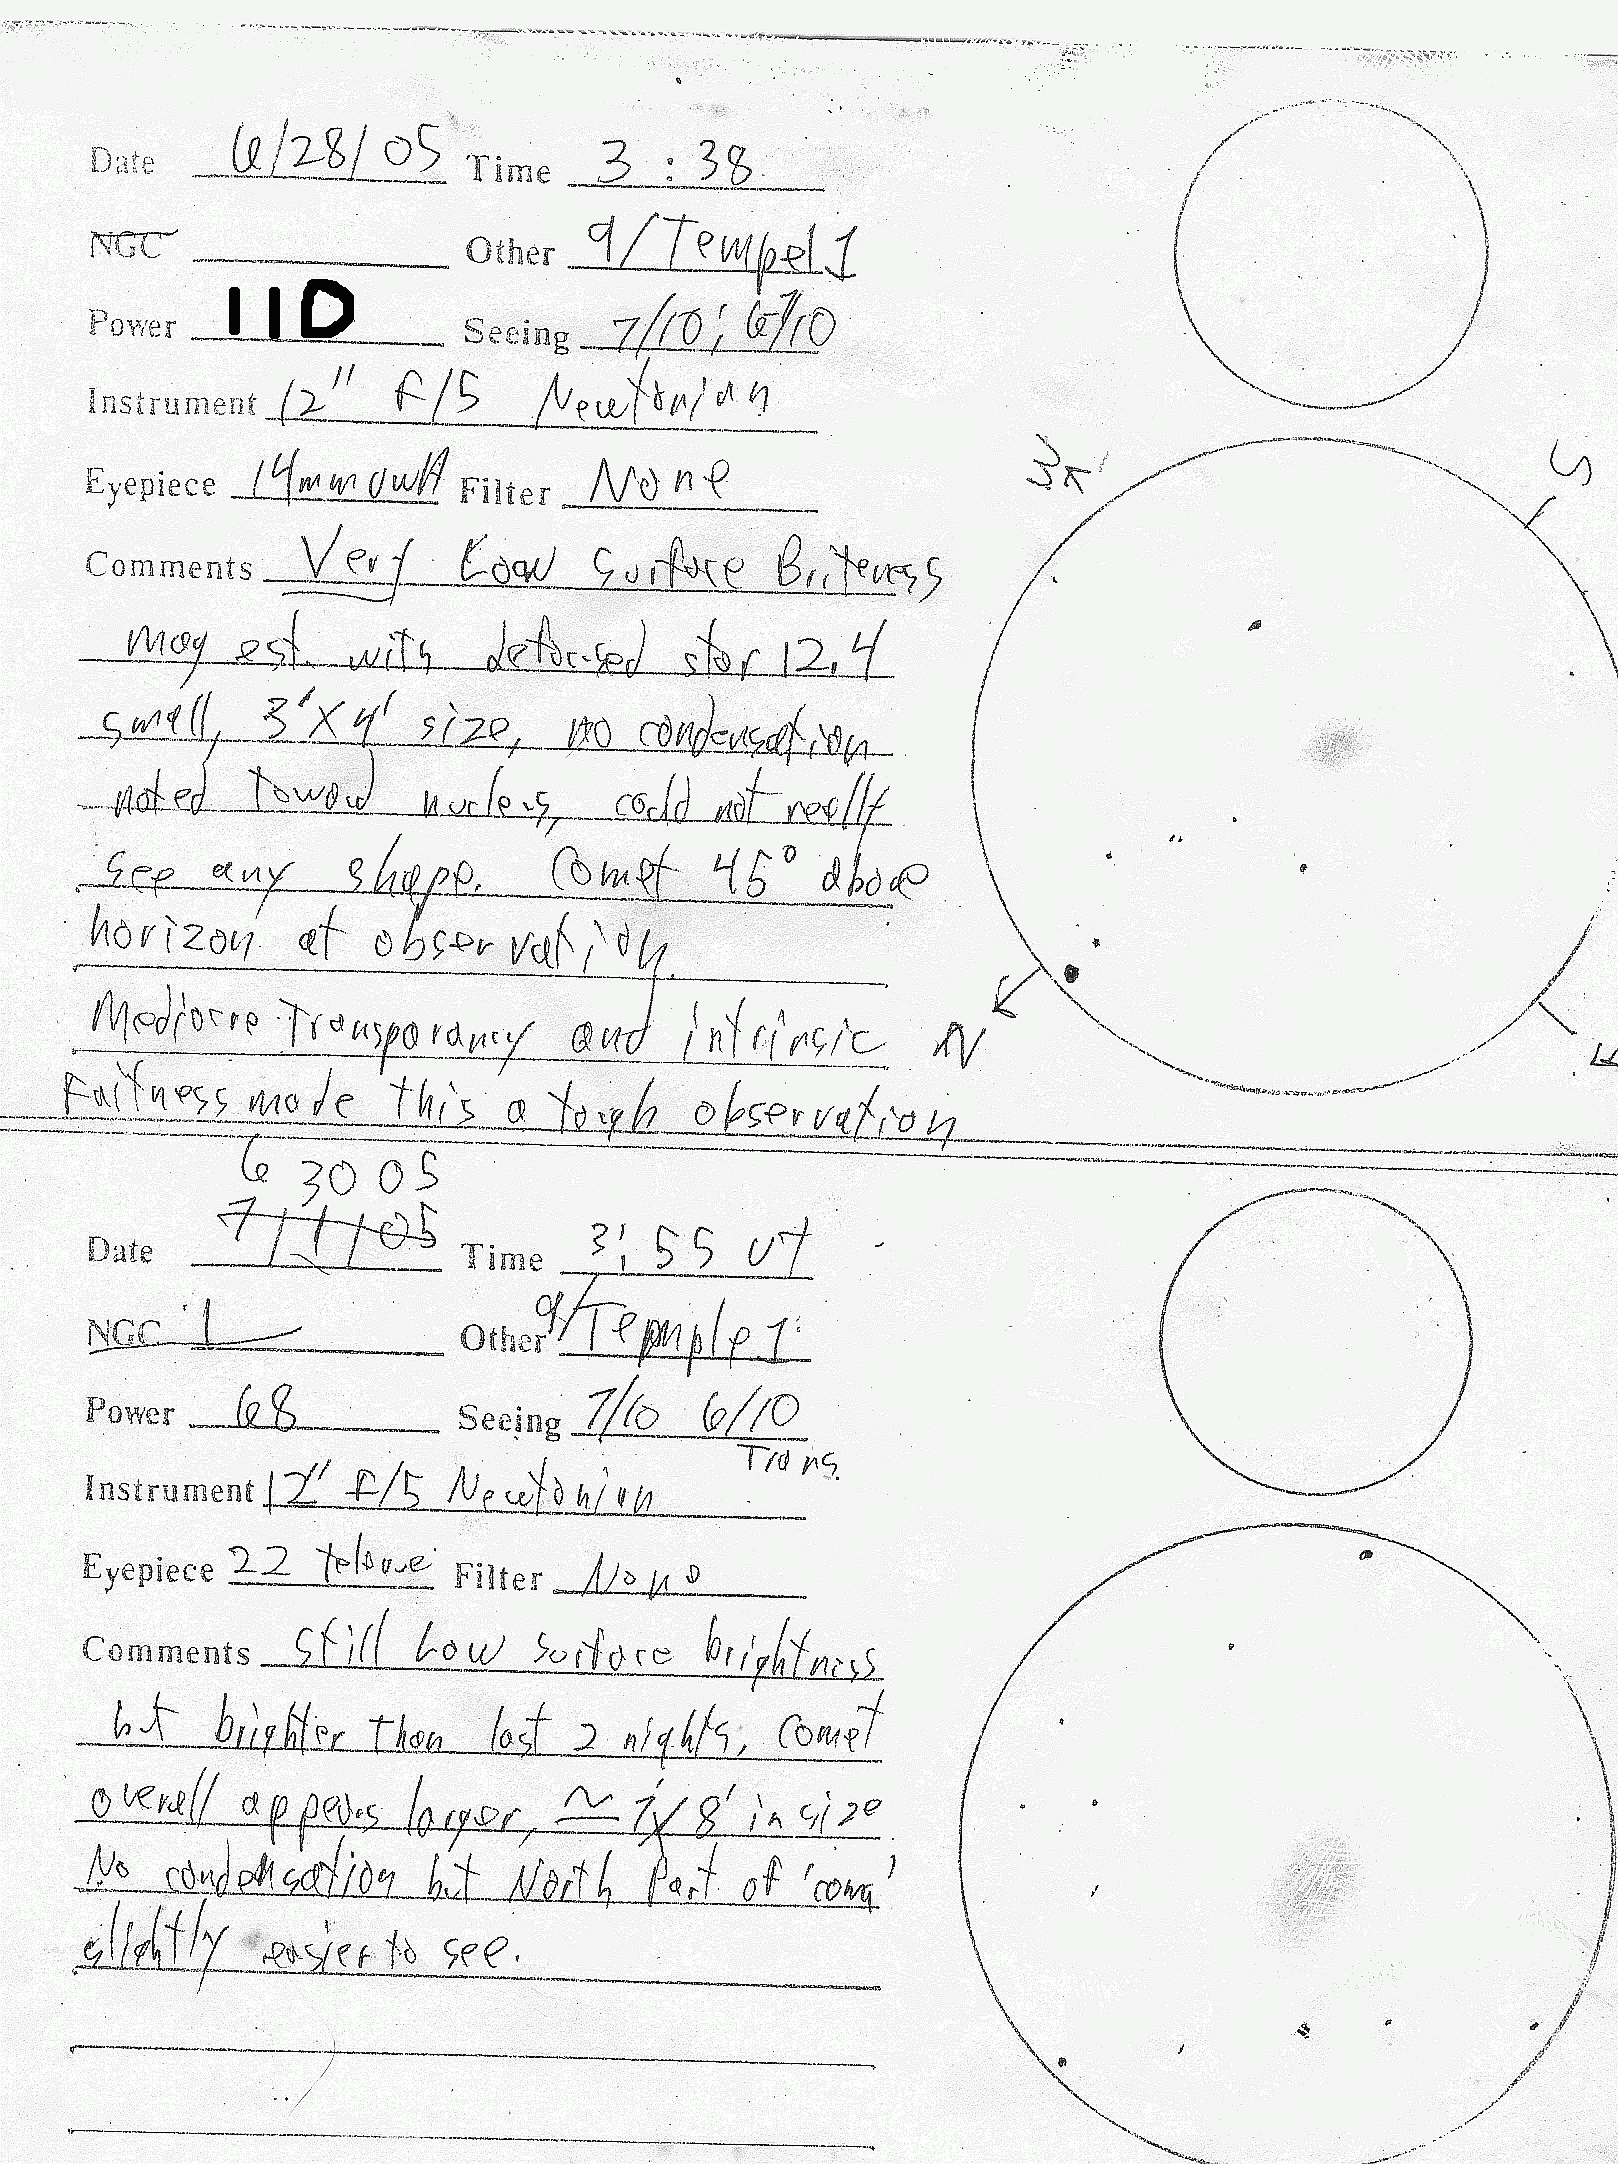 Date 6/28/05 Time 3:38
NGC Other 9/Tempel 1
Power 110 Seeing 7/10; 6/10
Instrument 12" F/5 Newtonian
Eyepiece 14mm UWA Filter None
Comments Very Low Surface Briteness
mag est. with defocused star 12.4
small, 3'X4' size, no condensation
noted toward nucleus, could not really
see any shape. Comet 45° above
horizon at observation.
Mediocre Transparancy and intrinsic
Faitness made this a tough observation
S
N
E
6 30 05
Date 7/1/05 Time 3:55 UT
NGC Other 9/Temple 1
Power 68 Seeing 7/10 6/10
Trans.
Instrument 12" F/5 Newtonian
Eyepiece 22 Filter None
Comments Still Low surface brightness
but brighter than last 2 nights; comet
overall appears larger, ≃ 8' in size
No condensation but North Part of 'coma'
slightly easier to see.